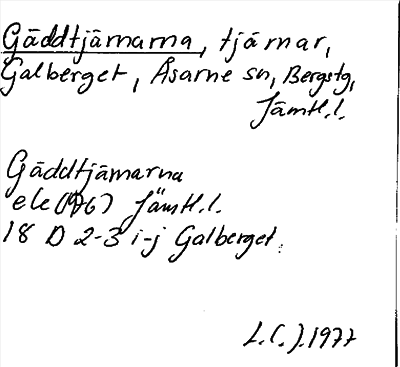 Gäddtjärnarna, tjärnar,
Galberget, Åsarne sn, Bergstg,
Jämtl.l.
Gäddtjärnarna
ele (76) Jämtl.l.
18 D 2-3 i-j Galberget.
L.C.J. 1977